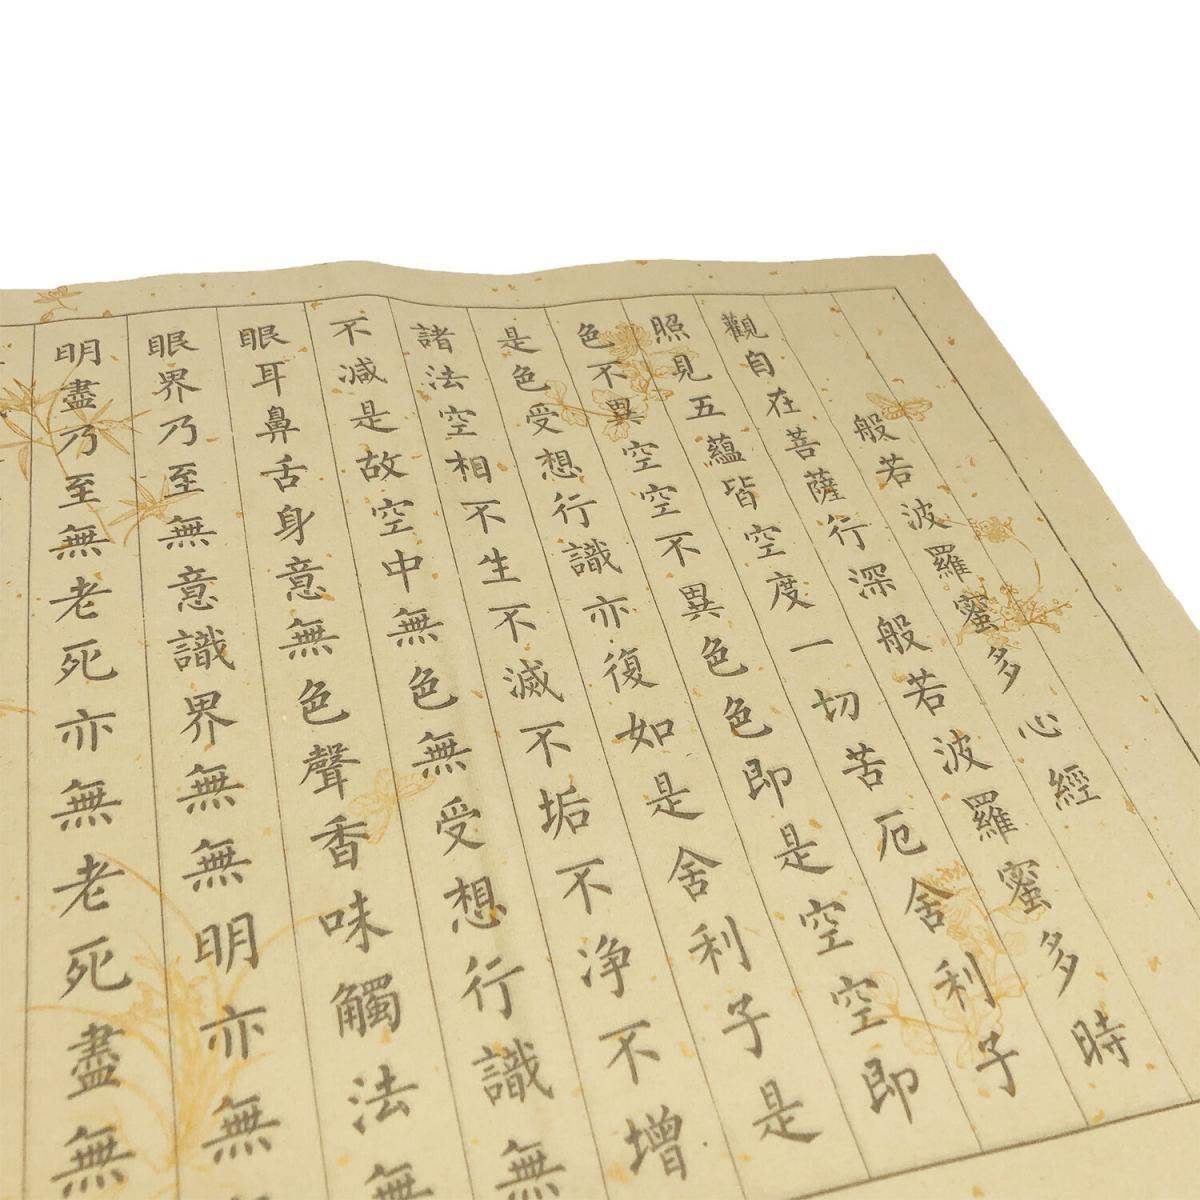 般若波羅蜜多心經
觀自在菩薩行深般若波羅蜜多時
照見五蘊皆空度一切苦厄舍利子
色不異空空不異色色即是空空即
是色受想行識亦復如是舍利子是
諸法空相不生不滅不垢不净不增
不减是故空中無色無受想行識無
眼耳鼻舌身意無色聲香味觸法無
眼界乃至無意識界無無明亦無
明盡乃至無老死亦無老死盡無